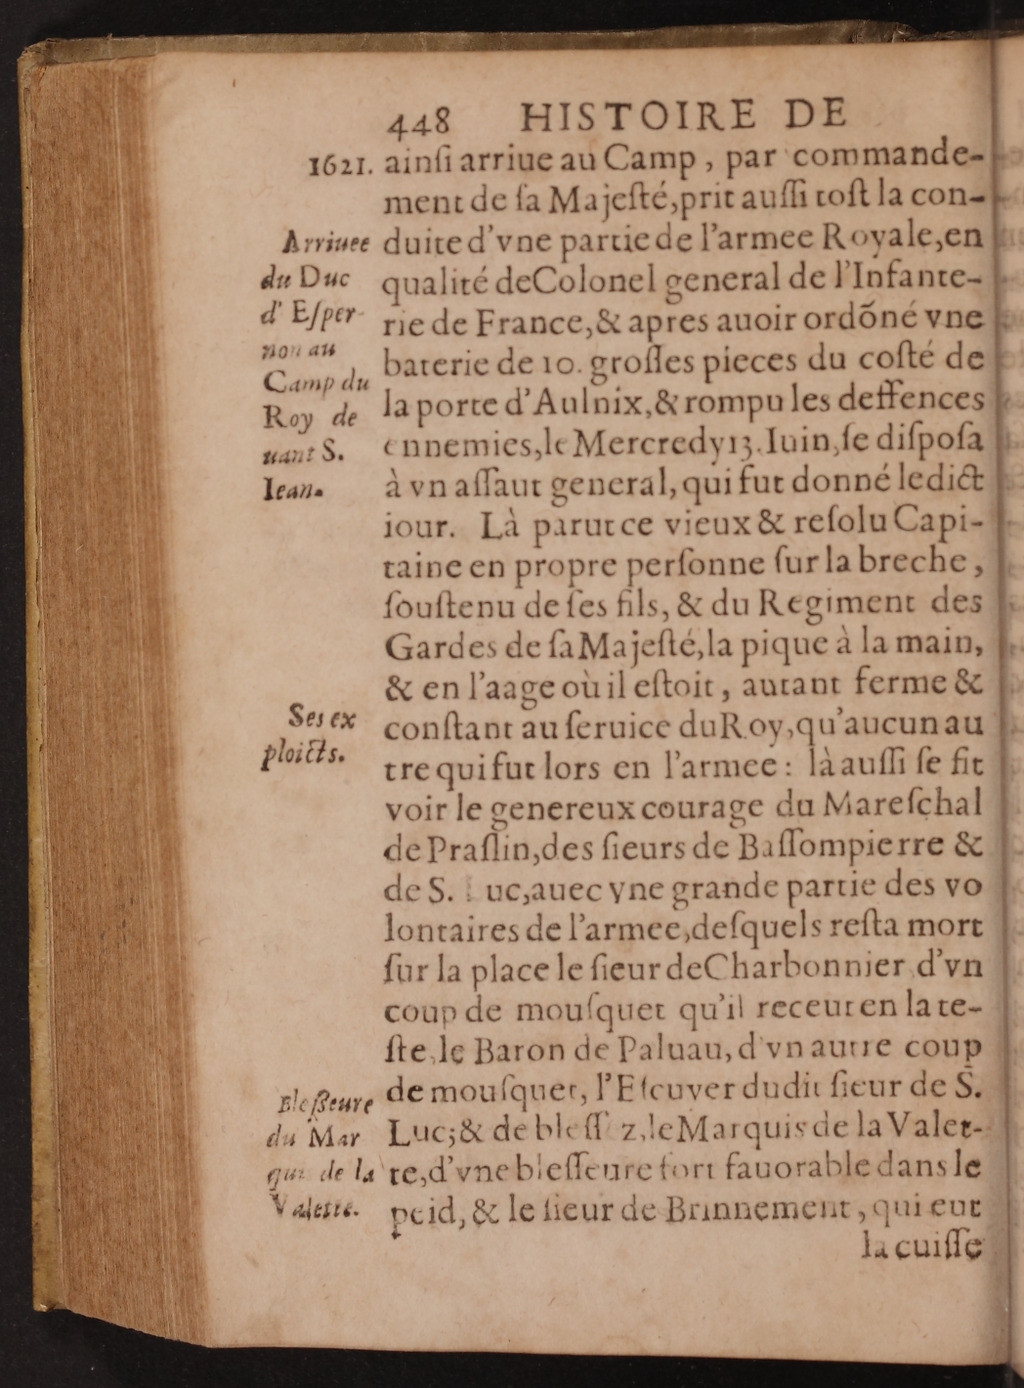 448 HISTOIRE DE
1621. ainſi arriue au Camp, par commande-
ment de ſa Majeſté, prit auſſi toſt la con-
Arriuee
du Duc
d'Eſper-
non au
Camp du
Roy de
uant S.
Iean.
duite d'vne partie de l'armee Royale, en
qualité de Colonel general de l'Infante-
rie de France, & apres auoir ordõné vne
baterie de 10. groſſes pieces du coſté de
la porte d'Aulnix, & rompu les deffences
ennemies, le Mercredy 13. Iuin, ſe diſpoſa
à vn aſſaut general, qui fut donné ledict
iour. Là parut ce vieux & reſolu Capi-
taine en propre perſonne ſur la breche,
ſouſtenu de ſes fils, & du Regiment des
Gardes de ſa Majeſté, la pique à la main,
& en l'aage où il eſtoit, autant ferme &
Ses ex
ploicts.
conſtant au ſeruice du Roy, qu'aucun au
tre qui fut lors en l'armee: là auſſi ſe fit
voir le genereux courage du Mareſchal
de Praſlin, des ſieurs de Baſſompierre &
de S. Luc, auec vne grande partie des vo
lontaires de l'armee, deſquels reſta mort
ſur la place le ſieur de Charbonnier d'vn
coup de mouſquet qu'il receut en la te-
ſte, le Baron de Paluau, d'vn autre coup
Bleſſeure
du Mar
quis de la
Valette.
de mouſquet, l'Eſcuyer dudit ſieur de S.
Luc; & de bleſſez, le Marquis de la Valet-
te, d'vne bleſſeure fort fauorable dans le
peid, & le ſieur de Brinnement, qui eut
la cuiſſe